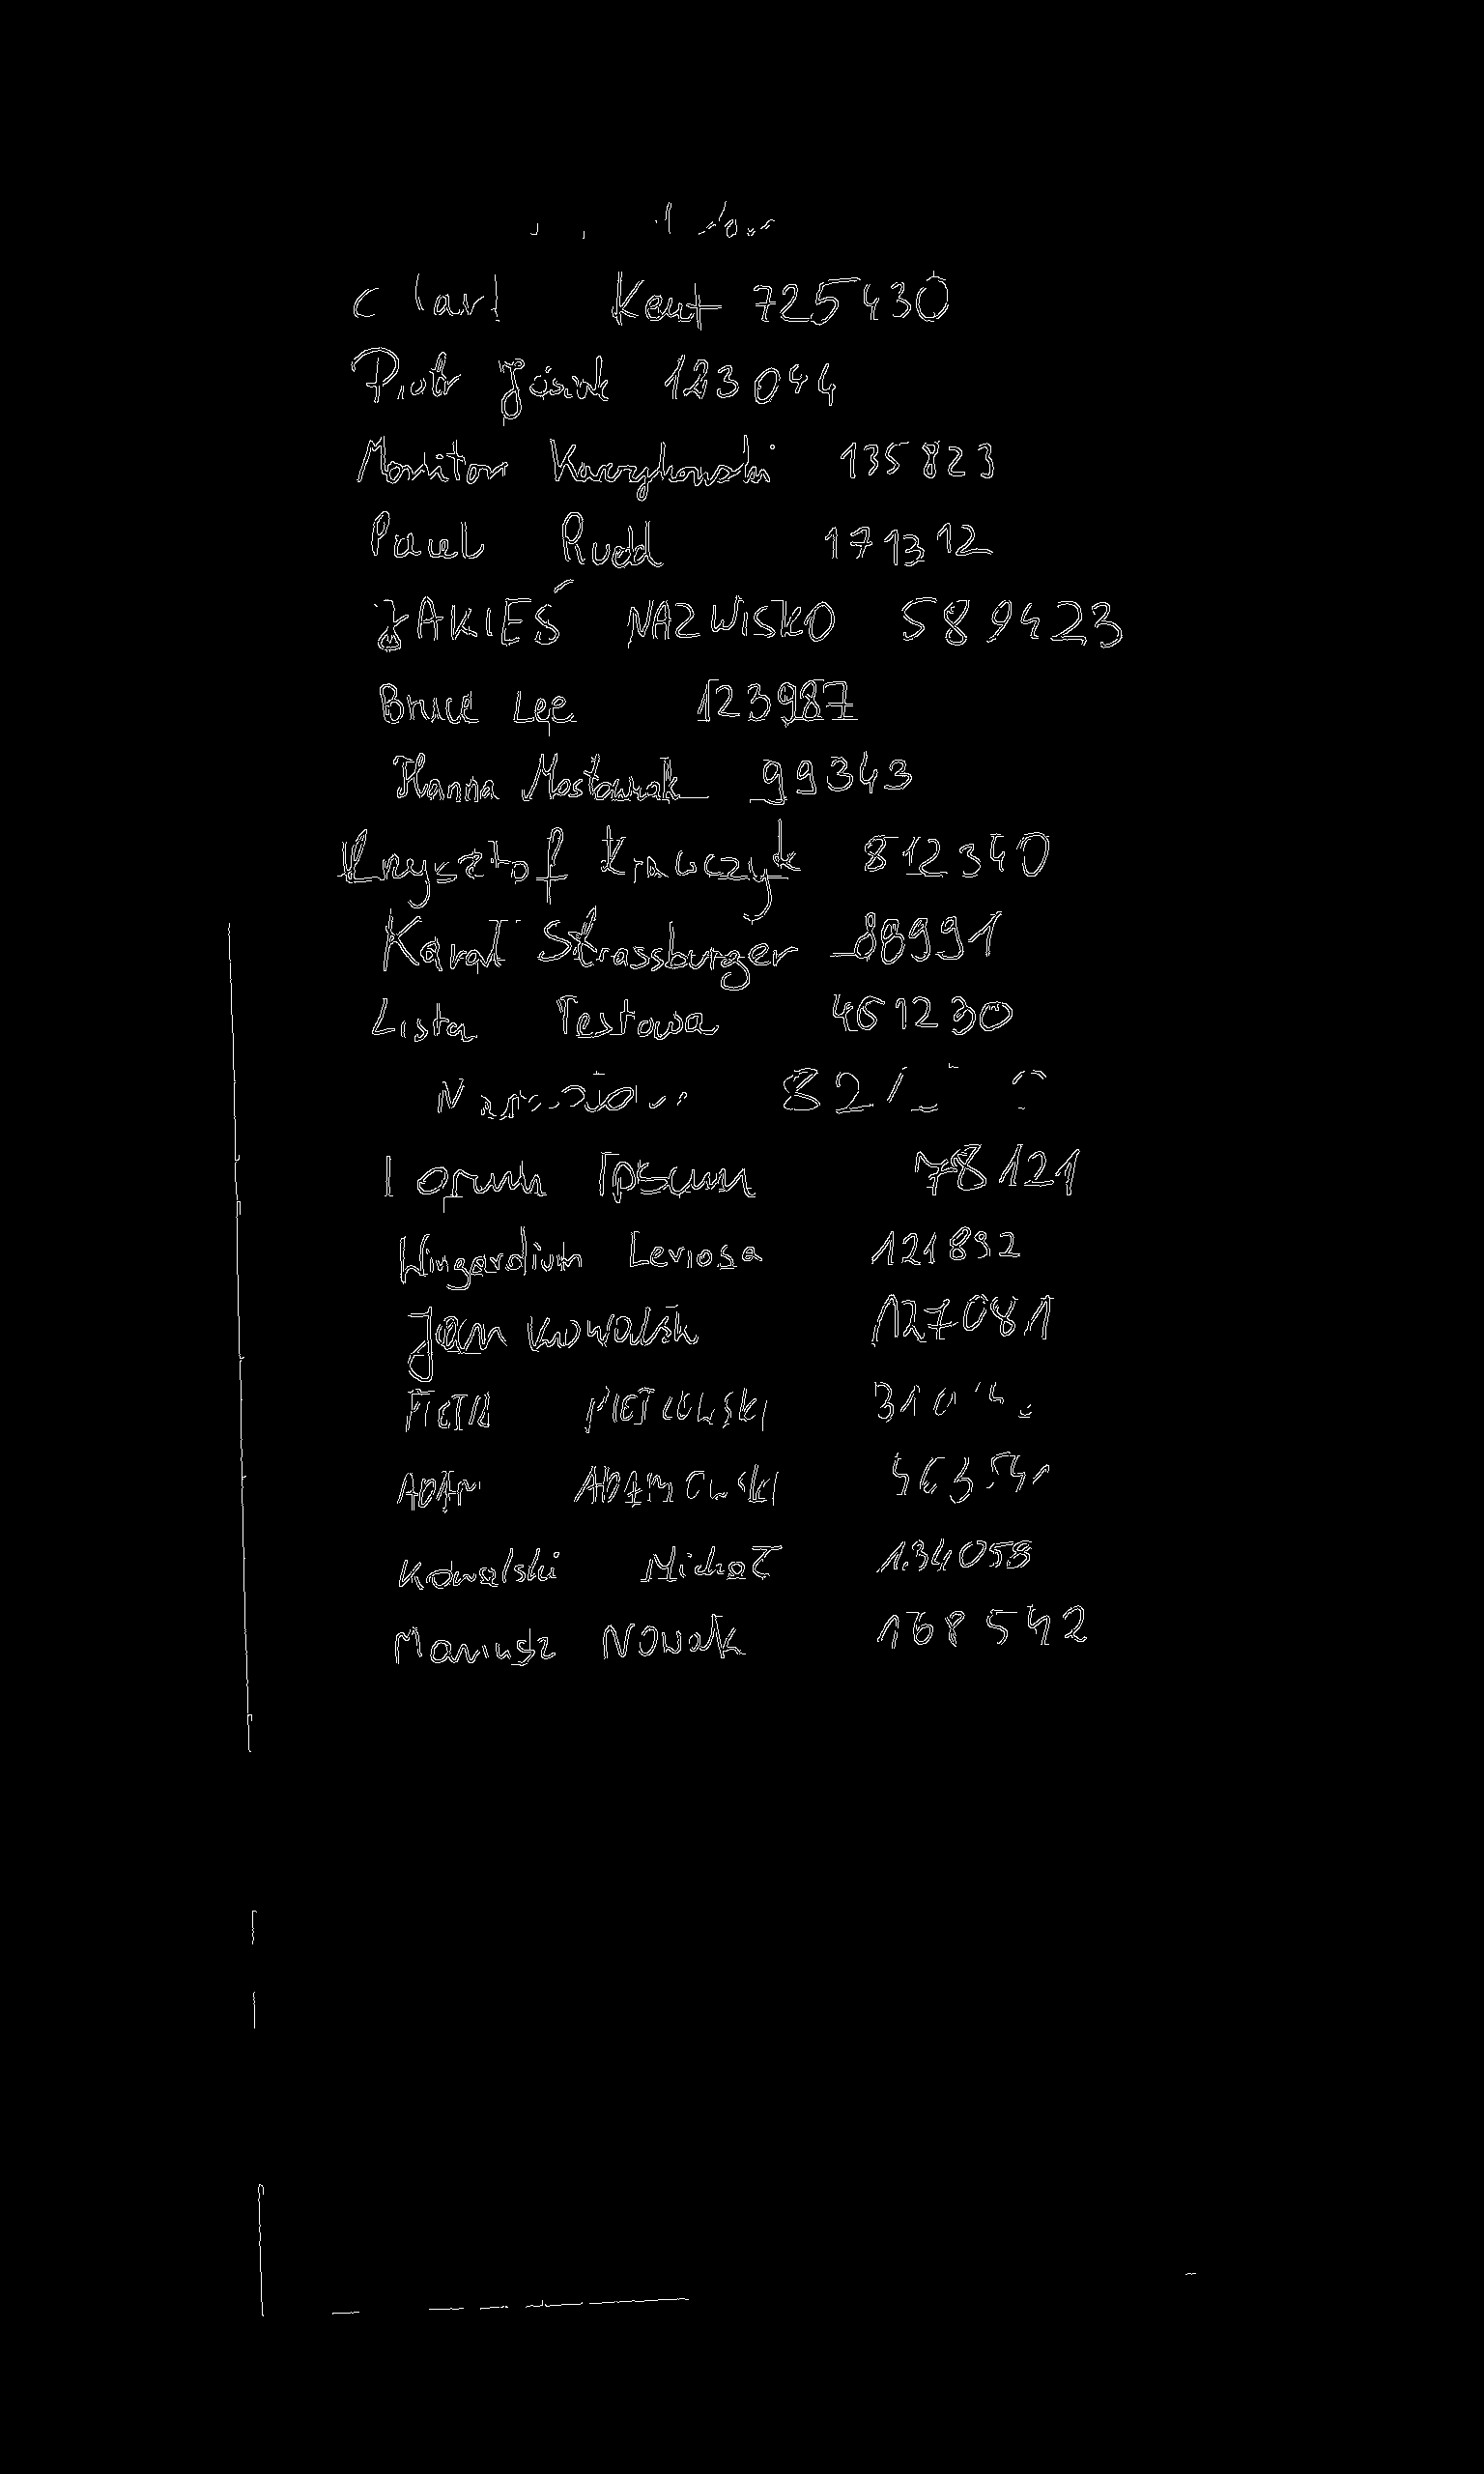 Clark Kent 725430
Piotr Jósiek 123044
Monitor Karczykowski 135823
Paweł Rudd 171312
JAKIEŚ NAZWISKO 589423
Bruce Lee 123987
Hanna Mostowiak 99343
Krzysztof Krawczyk 812340
Karol Strassburger 88991
Lista Testowa 461230
Lorum Ipsum 78121
Wingardium Leviosa 121892
Jan Kowalski 127081
PIOTR PIETROWSKI
ADAM ADAMOWSKI
Kowalski Michał 134059
Mariusz Nowak 168542